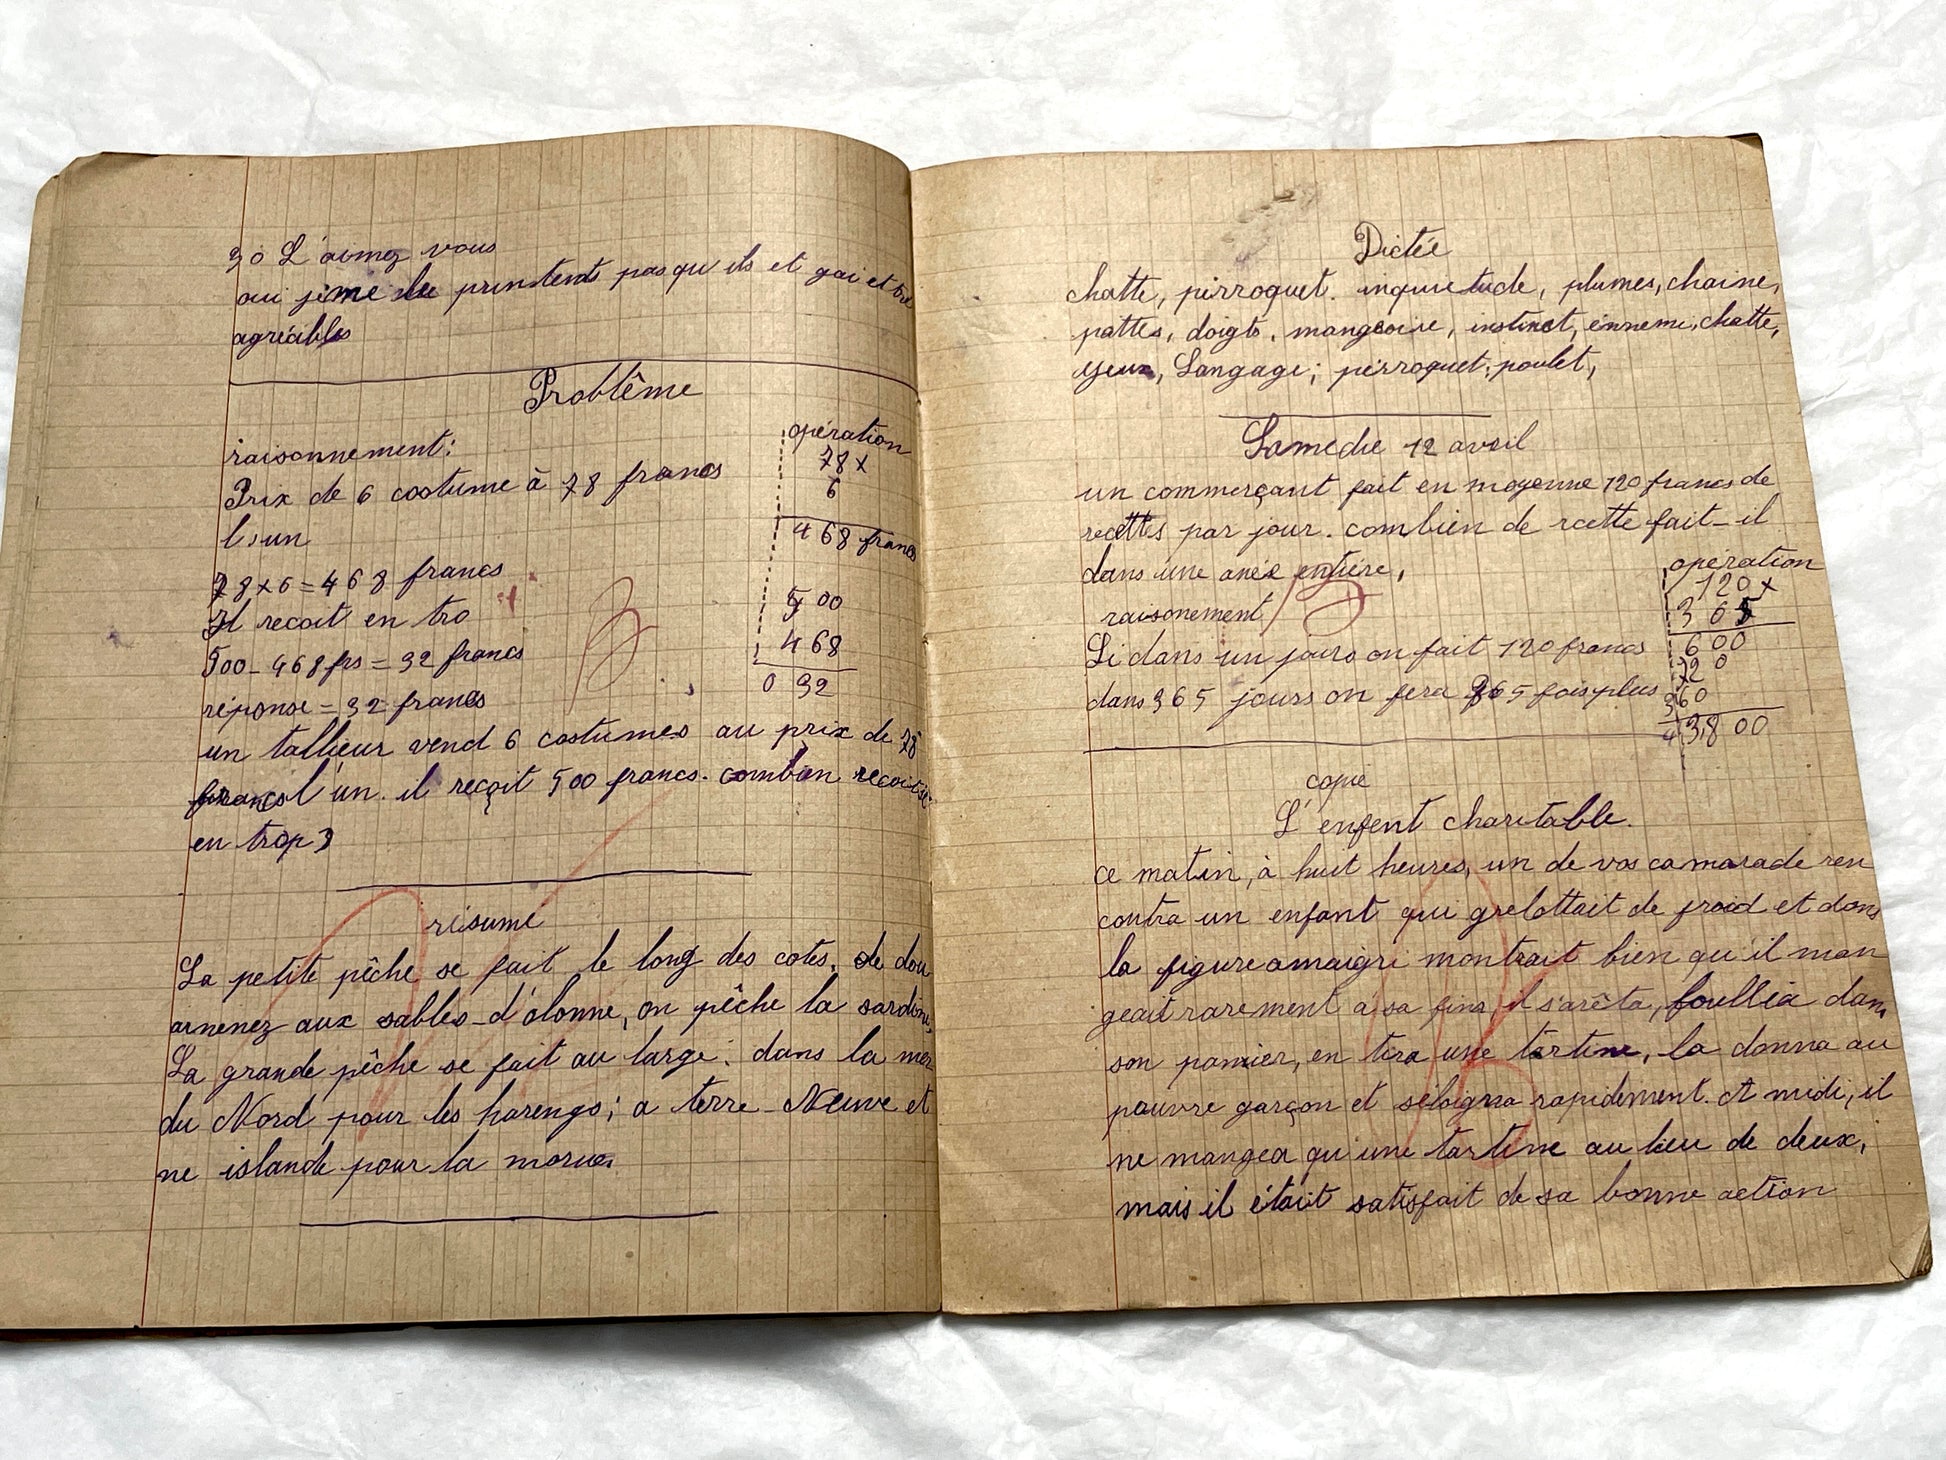 3o L'aimez vous
oui j'eme le printents pasqu'ils et gai et tré
agréables
Problême
raisonnement:
Prix de 6 costume à 78 francs
l'un
78x6=468 francs
Il recoit en tro
500-468frs = 32 francs
réponse = 32 francs
opération
78x
6
468 francs
500
468
0 32
un tallieur vend 6 costumes au prix de 78
francs l'un. il reçoit 500 francs. combien recoit
en trop?
résumé
La petite pêche se fait le long des cotes. de dou
arnenez aux sables-d'olonne, on pêche la sardine.
La grande pêche se fait au large: dans la mer
du Nord pour les harengs; a terre-Neuve et
ne islande pour la morue
Dictée
chatte, pirroquet. inquietude, plumes, chaine,
pattes, doigts, mangeoire, instinct, ennemi, chatte,
yeux, Langage; pérroquet; poulet,
Samedie 12 avril
un commerçant fait en moyenne 120 francs de
recettes par jour. combien de rcette fait-il
dans une anée entière,
raisonement
Si dans un jours on fait 120 francs
dans 365 jours on fera 365 fois plus
opération
120x
365
600
720
360
43,800
copie
L'enfent charitable.
ce matin, à huit heures, un de vos camarade ren
contra un enfant qui grelottait de froid et dons
la figure amaigri montrait bien qu'il man
geait rarement a sa fins, il s'arêta, foullia dans
son pannier, en tira une tartine, la donna au
pauvre garçon et séloigna rapidement. A midi, il
ne mangea qu'une tartine au lieu de deux,
mais il était satisfait de sa bonne action